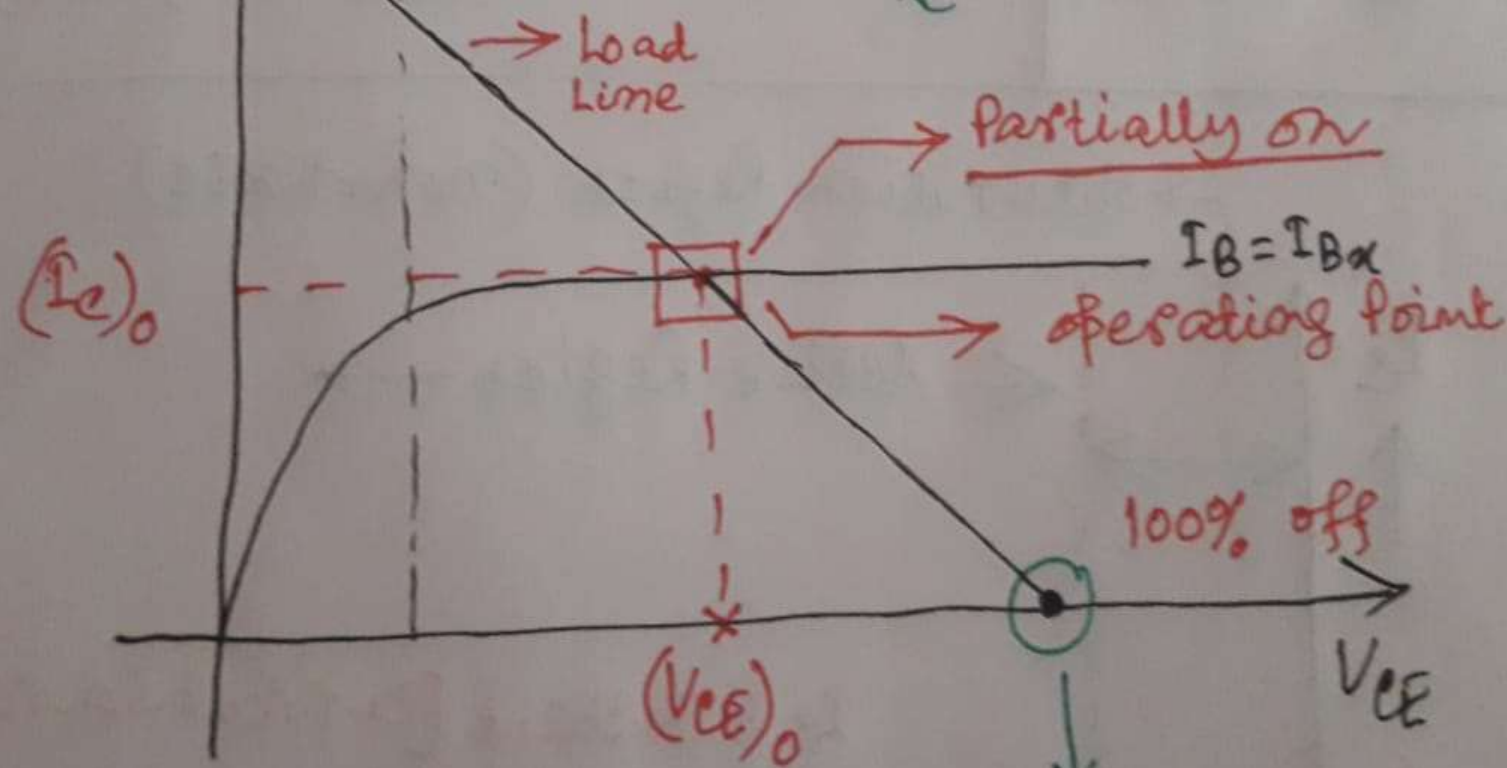 Load
Line
Partially on
I_B = I_Bx
(I_c)_0
operating Point
100% off
V_CE
(V_CE)_0